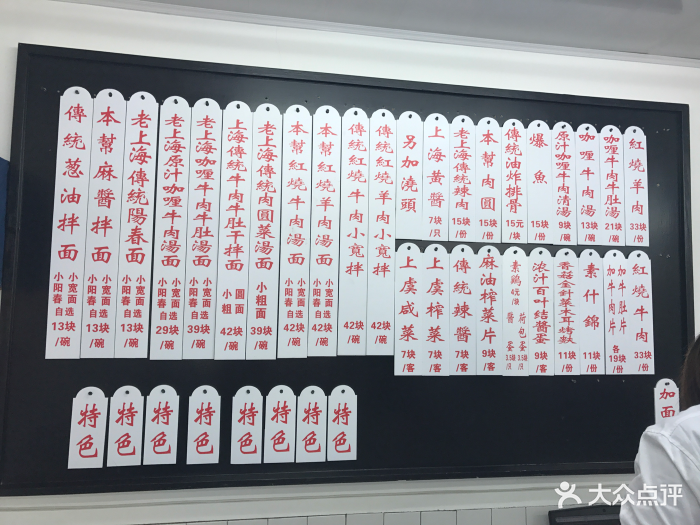 傳統蔥油拌面 小阳春 小宽面 自选 13块/碗
本幫麻醬拌面 小阳春 小宽面 自选 13块/碗
老上海傳統陽春面 小阳春 小宽面 自选 13块/碗
老上海原汁咖喱牛肉湯面 小阳春 小宽面 自选 29块/碗
老上海咖喱牛肉牛肚湯面 小阳春 小宽面 自选 39块/碗
上海傳統牛肉牛肚干拌面 小粗 圆面 42块/碗
老上海傳統肉圓菜湯面 小粗面 39块/碗
本幫紅燒牛肉湯面 小阳春 小宽面 自选 42块/碗
本幫紅燒羊肉湯面 小阳春 小宽面 自选 42块/碗
傳統紅燒牛肉小寬拌 42块/碗
傳統紅燒羊肉小寬拌 42块/碗
另加澆頭
上海黄醬 7块/只
老上海傳統辣肉 15块/份
本幫肉圓 15块/份
傳統油炸排骨 15元/块
爆魚 15块/份
原汁咖喱牛肉清湯 9块/碗
咖喱牛肉湯 13块/碗
咖喱牛肉牛肚湯 21块/碗
紅燒羊肉 33块/份
上虞咸菜 7块/客
上虞榨菜 7块/客
傳統辣醬 7块/客
麻油榨菜片 9块/客
素鷄 醬蛋 荷包蛋
浓汁百叶结醬蛋 9块/客
香菇金針菜木耳烤麩 11块/份
素什錦 11块/份
加牛肉片 加牛肚片 各19块/份
紅燒牛肉 33块/份
特色
特色
特色
特色
特色
特色
特色
特色
加面
大众点评